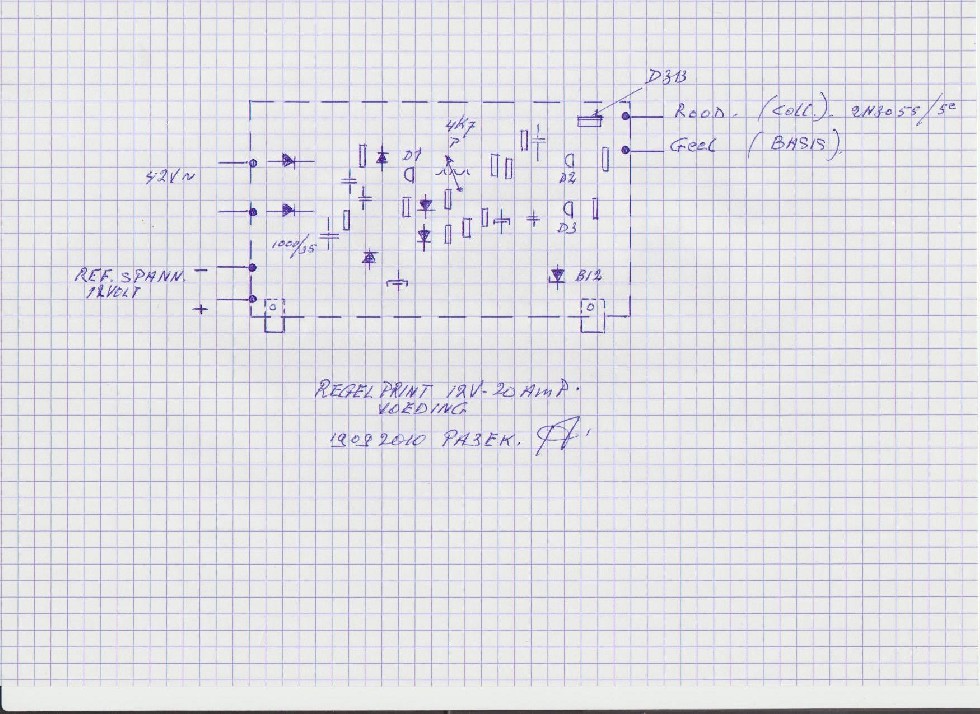 D313
ROOD. (COLL.). 2N3055/5e
GEEL (BASIS).
4K7
P
D1
42V~
D2
D3
1000/35
REF. SPANN.
12VOLT
-
+
B12
REGELPRINT 12V-20AMP.
VOEDING
19092010 PA3EK.